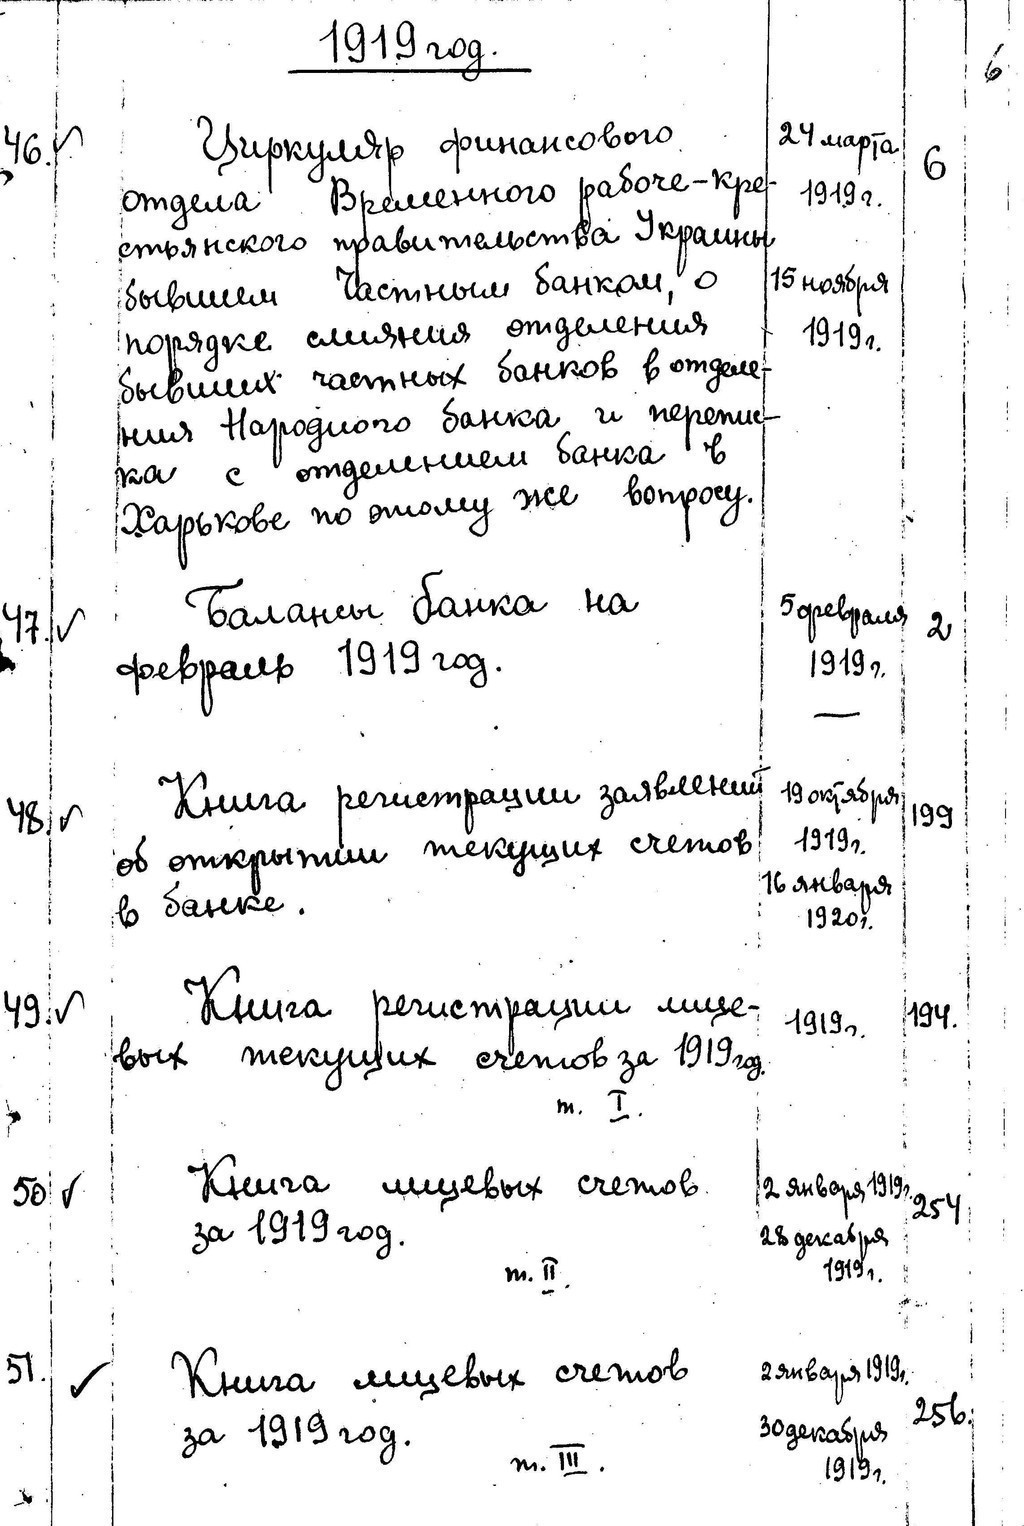 1919 год.
6
46. Циркуляр финансового 24 марта 6
отдела Временного рабоче-кре- 1919 г.
стьянского правительства Украины
бывшем Частным банком, о 15 ноября
порядке слияния отделения 1919 г.
бывших частных банков в отделе-
ния Народного банка и перепис-
ка с отделением банка в
Харькове по этому же вопросу.
47. Балансы банка на 5 февраля 2
февраль 1919 год. 1919 г.
—
48. Книга регистрации заявлений 19 октября 199
об открытии текущих счетов 1919 г.
в банке. 16 января
1920 г.
49. Книга регистрации лице- 1919 г. 194.
вых текущих счетов за 1919 год.
т. I.
50 Книга лицевых счетов 2 января 1919 г. 254
за 1919 год. 28 декабря
т. II. 1919 г.
51. Книга лицевых счетов 2 января 1919 г.
за 1919 год. 30 декабря 256.
т. III. 1919 г.